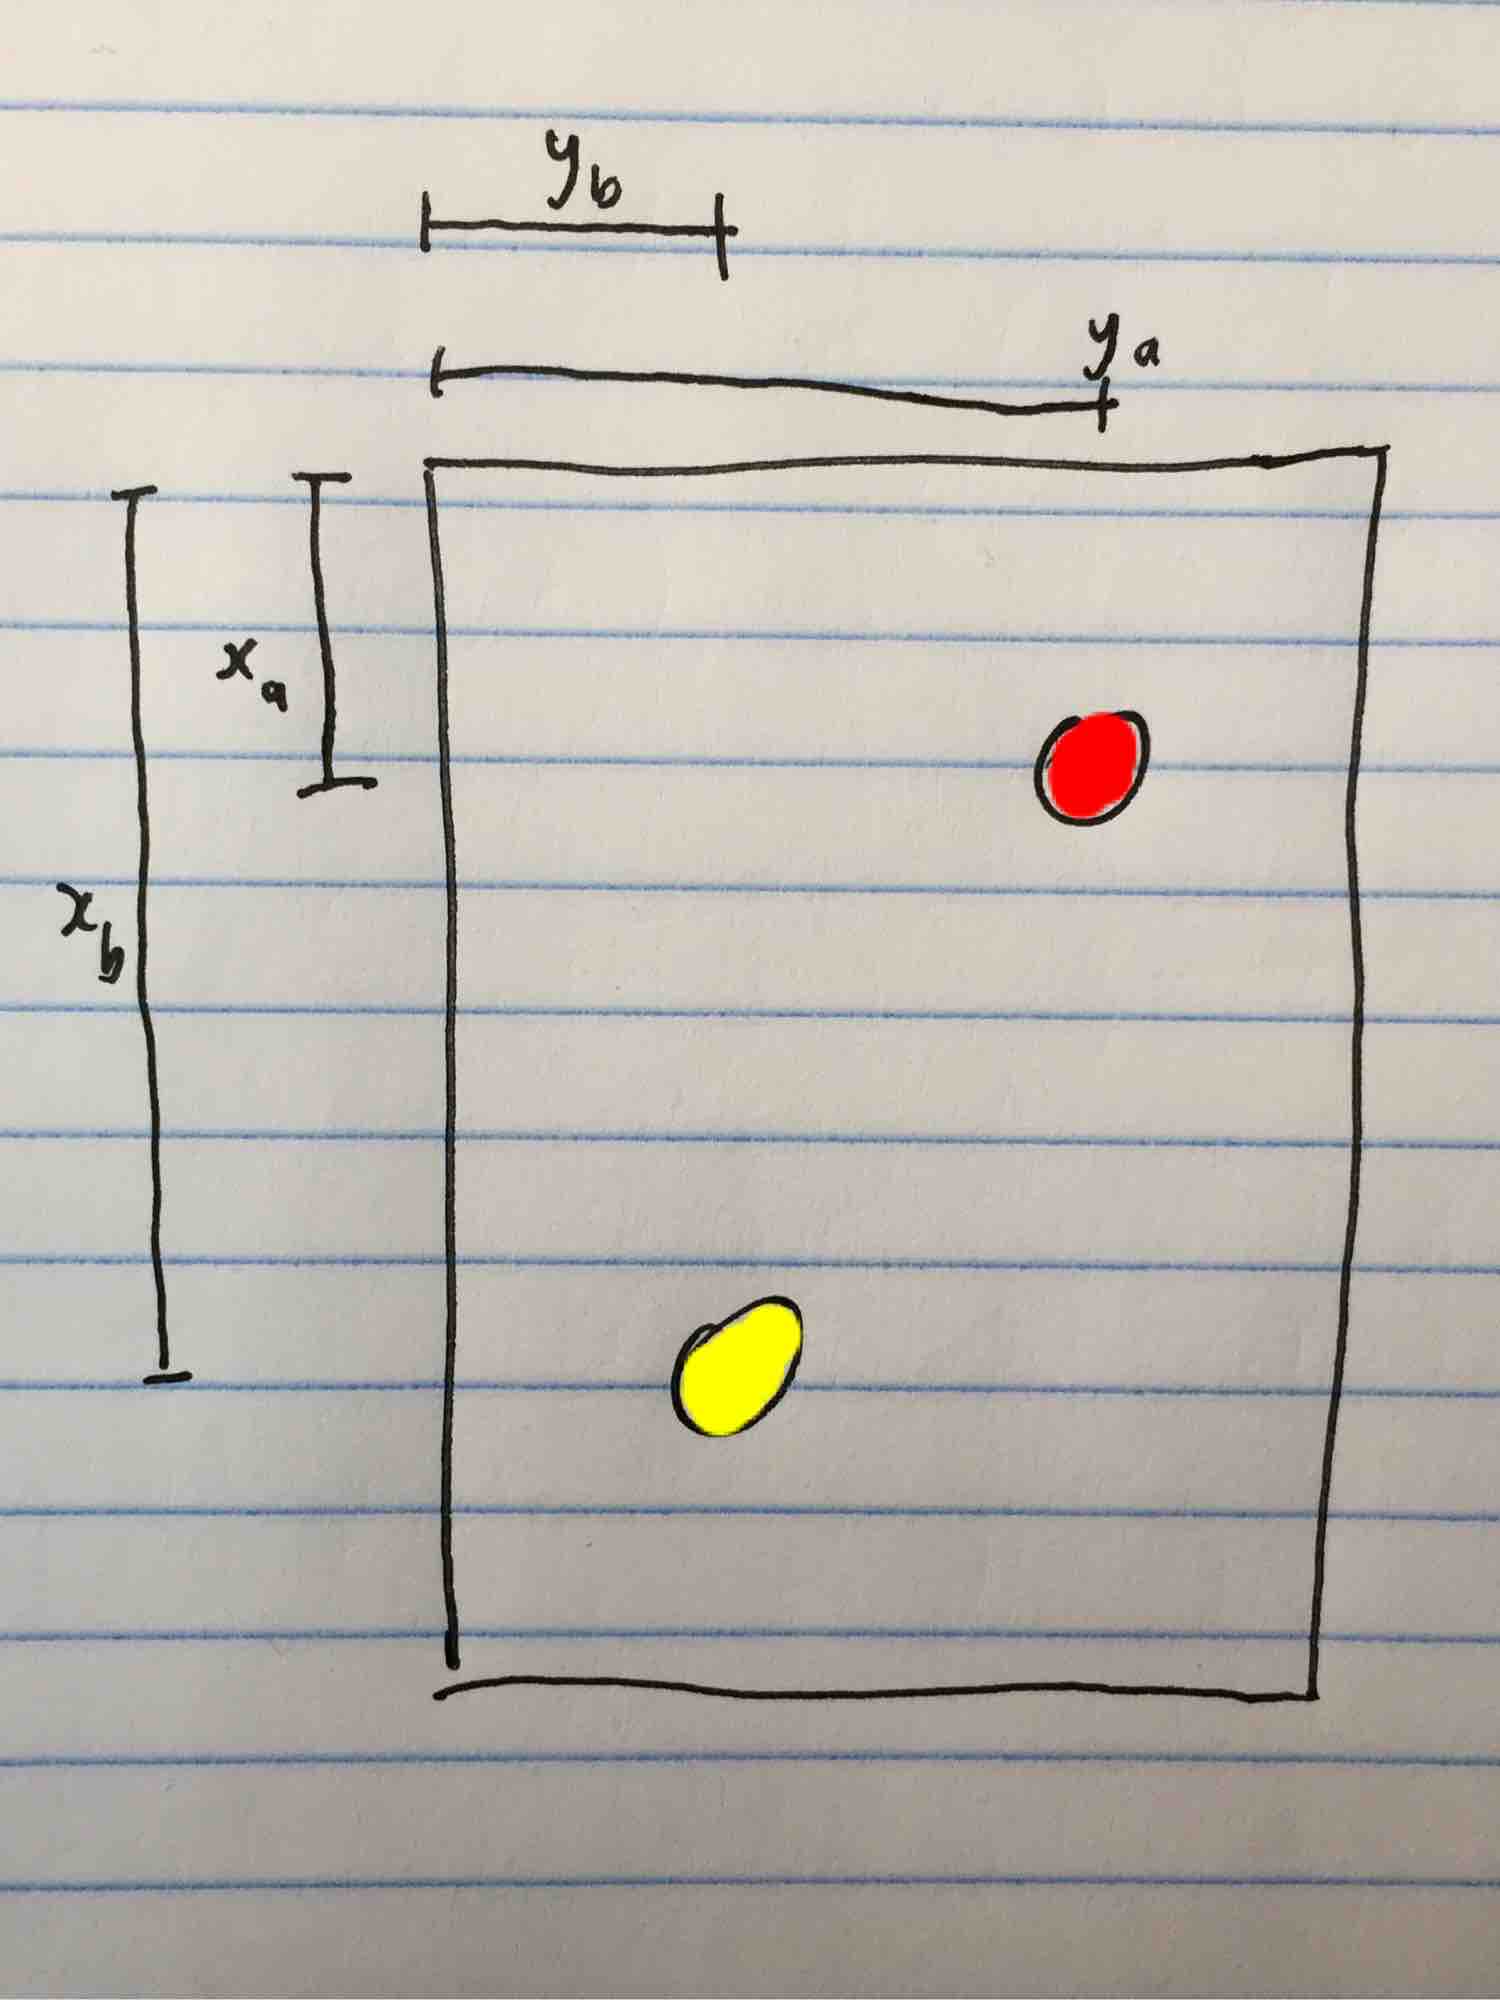 y_b
y_a
x_a
x_b